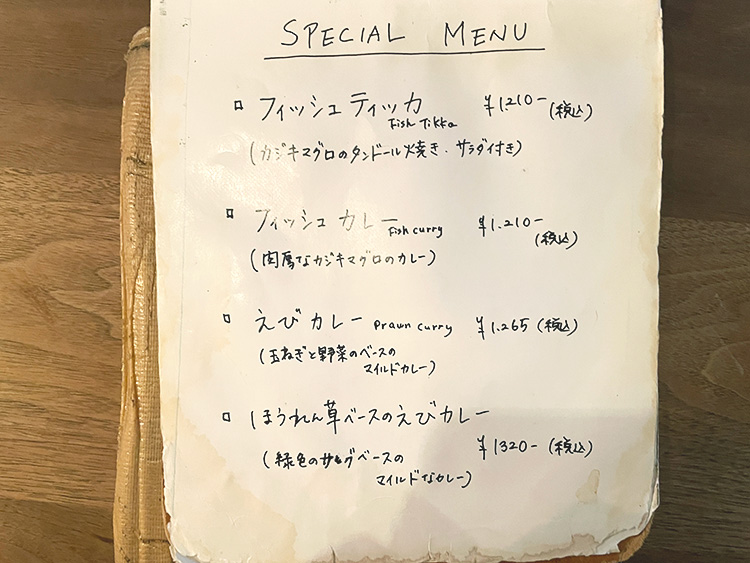 SPECIAL MENU
フィッシュティッカ ¥1.210- (税込)
Fish Tikka
(カジキマグロのタンドール焼き、サラダ付き)
フィッシュカレー Fish curry ¥1.210-
(税込)
(肉厚なカジキマグロのカレー)
えびカレー Prawn curry ¥1.265 (税込)
(玉ねぎと野菜のベースの
マイルドカレー)
ほうれん草ベースのえびカレー
¥1320- (税込)
(緑色のサグベースの
マイルドなカレー)